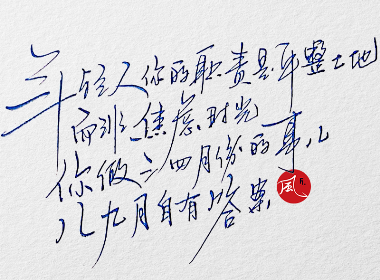 年轻人你的职责是平整土地
而非焦虑时光
你做三四月份的事儿
八九月自有答案
风